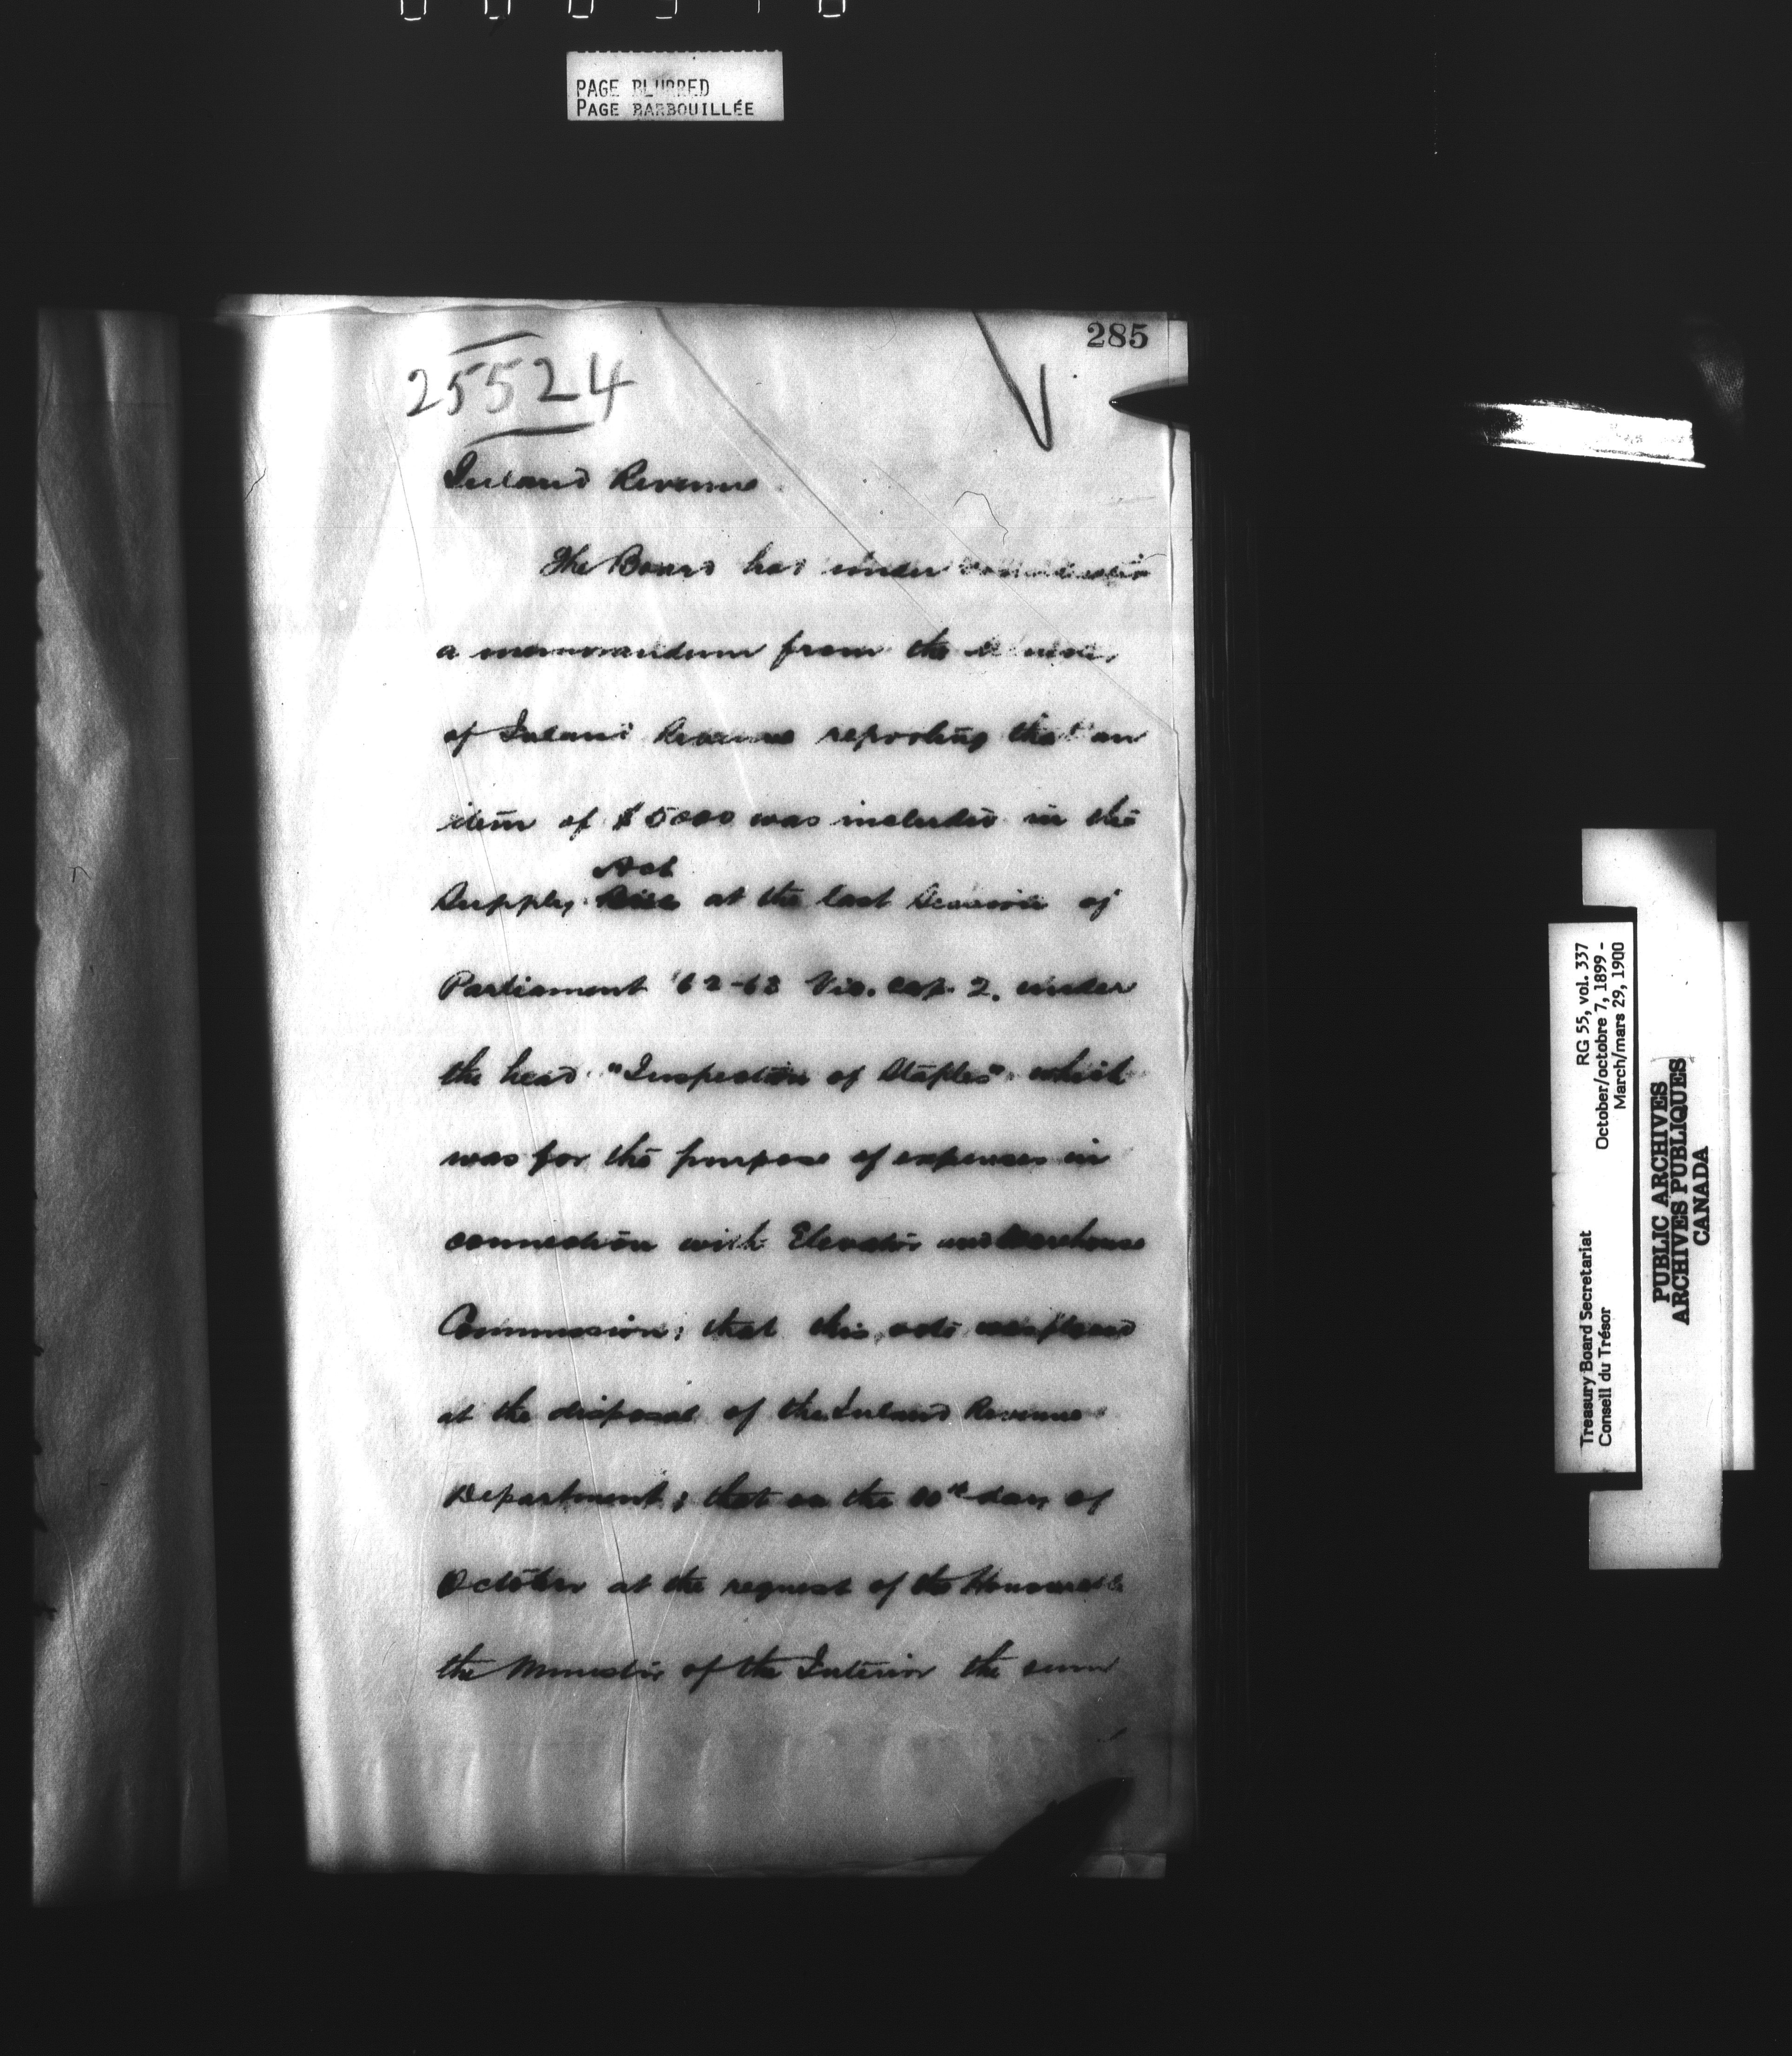 PAGE BLURRED
PAGE BARBOUILLÉE
285
25524
Inland Revenue
The Board has under consideration
a memorandum from the Minister
of Inland Revenue reporting that an
item of $5000 was included in the
Act
Supply Bill at the last Session of
Parliament 62-63 Vic. cap. 2. under
the head "Inspection of Staples" which
was for the purpose of expenses in
connection with Elevator and Warehouse
Commission; that this vote was placed
at the disposal of the Inland Revenue
Department; that on the 10th day of
October at the request of the Honourable
the Minister of the Interior the sum
Treasury Board Secretariat
Conseil du Trésor
RG 55, vol. 337
October/octobre 7, 1899 -
March/mars 29, 1900
PUBLIC ARCHIVES
ARCHIVES PUBLIQUES
CANADA